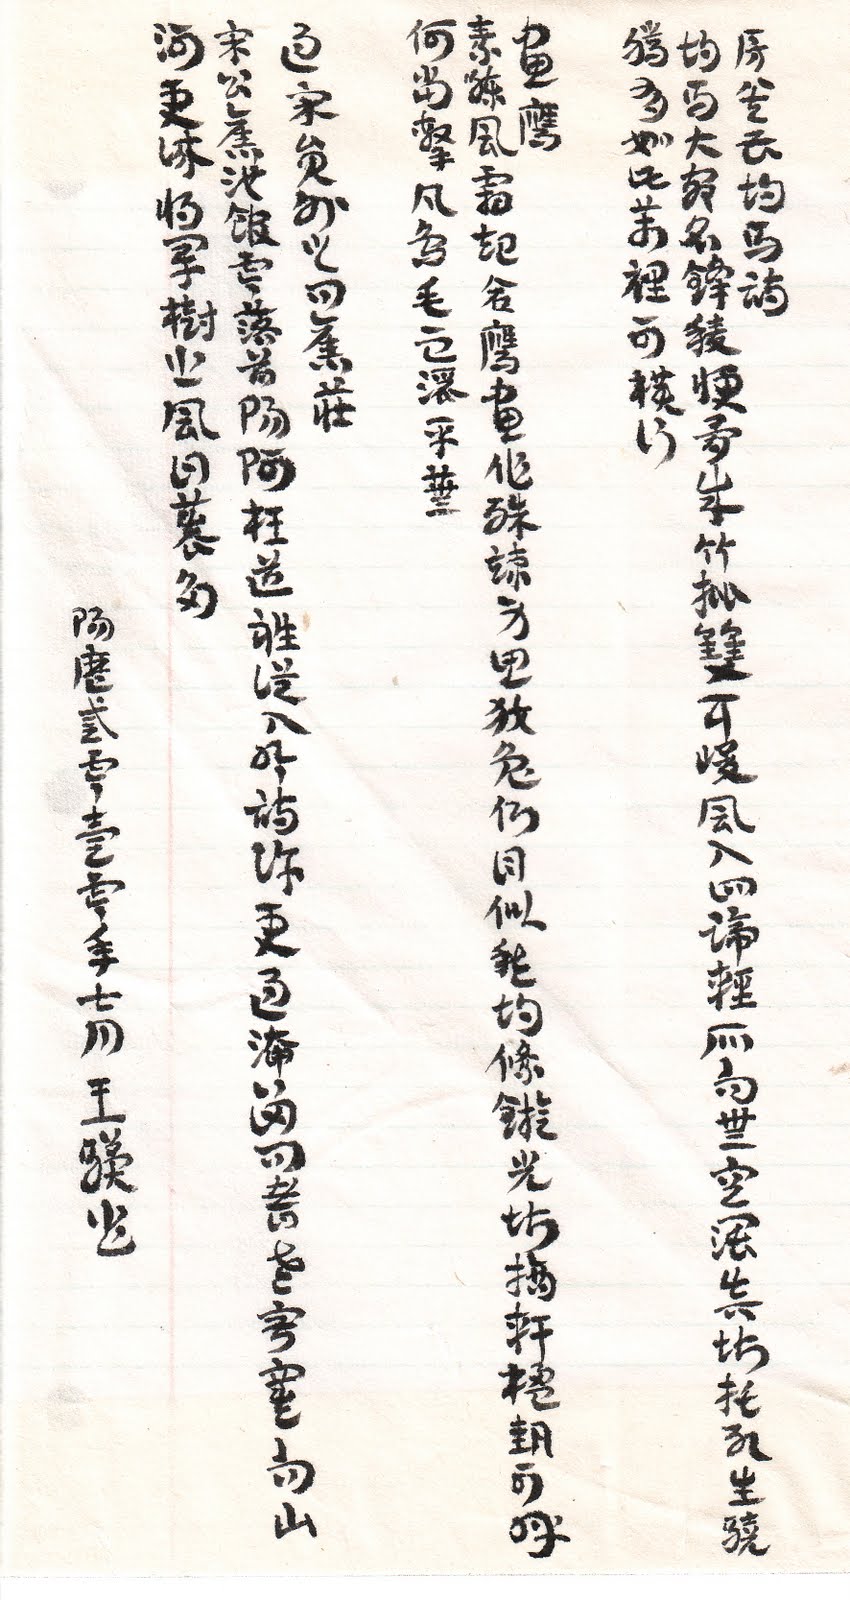 房兵曹胡馬詩
胡馬大宛名鋒稜瘦骨成竹批雙耳峻風入四蹄輕所向無空濶真堪托死生驍
騰有如此萬里可橫行
畫鷹
素練風霜起蒼鷹畫作殊竦身思狡兔側目似愁胡絛鏇光堪摘軒楹勢可呼
何當擊凡鳥毛血灑平蕪
過宋員外之問舊莊
宋公舊池館零落首陽阿枉道祗從入吟詩許更過淹留問耆老寂寞向山
河更識將軍樹悲風日暮多
陽曆貳零壹零年七月 王